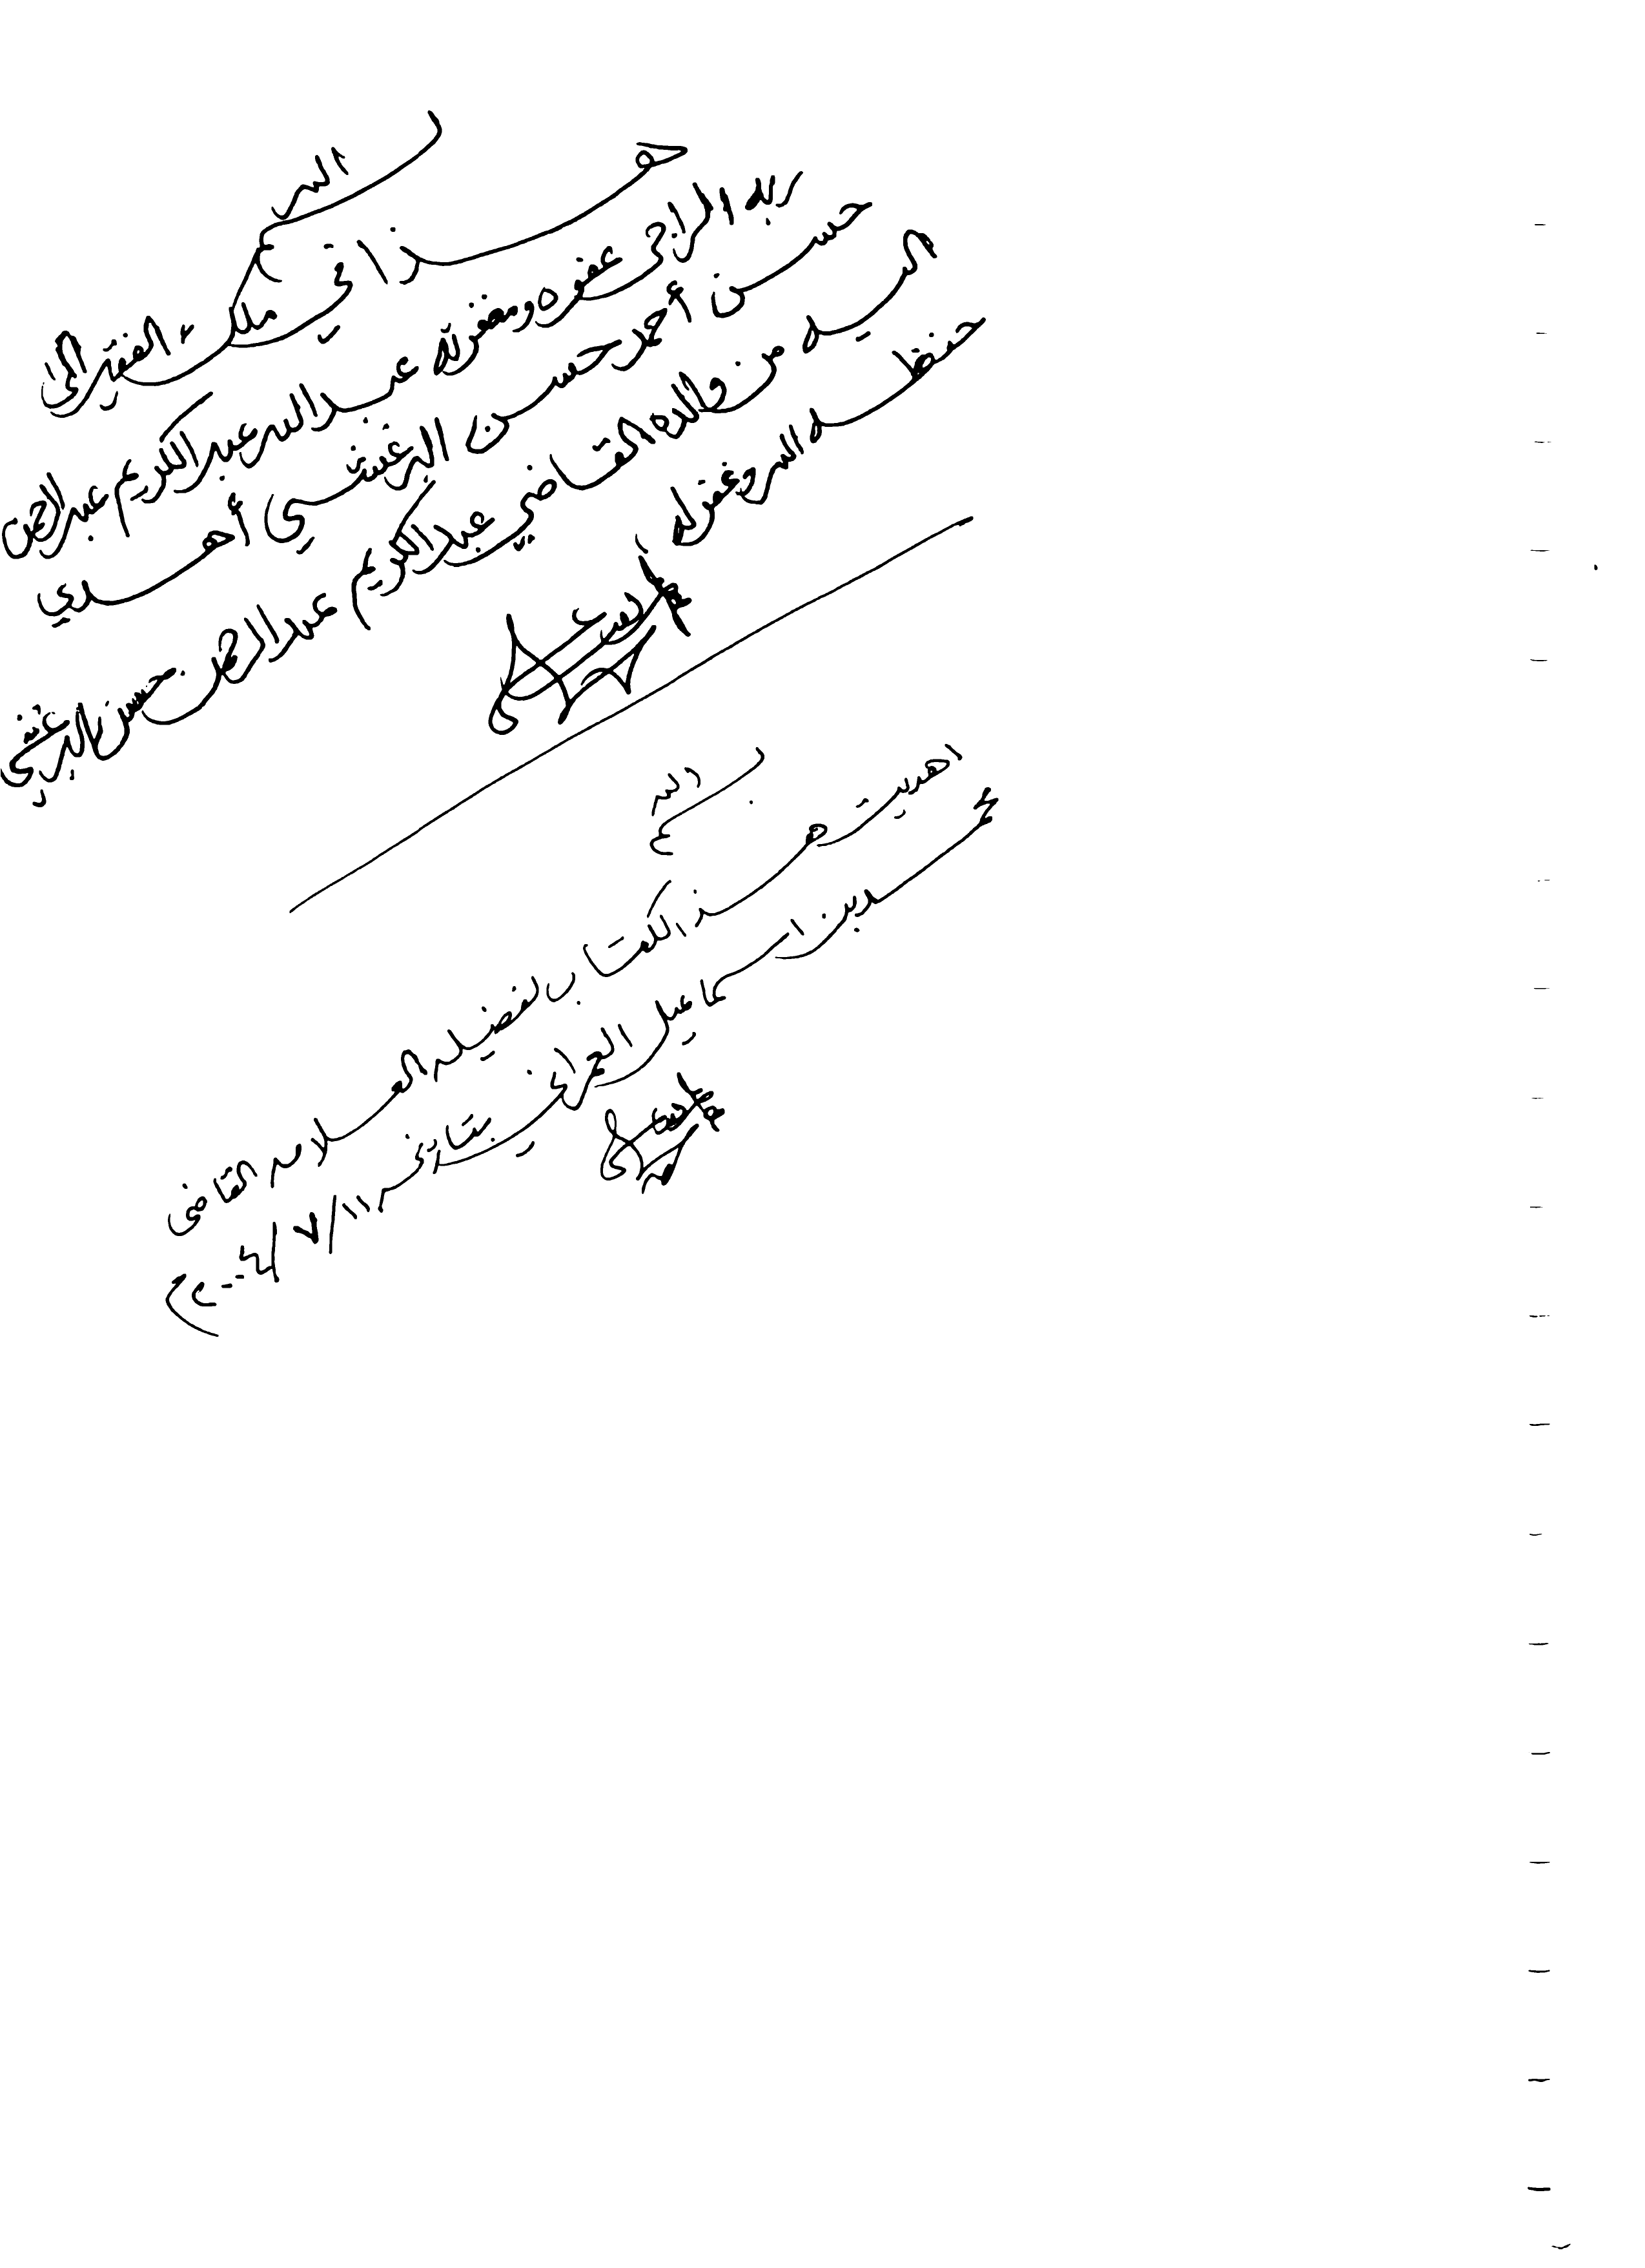 بسم الله
هذا في ملك الفقير إلى
ربه الراجي عفوه ومغفرته عبد الله عبد الكريم عبد الرحمن
حسن أحمد حسن البرغشي أهدي
اليه من والده القاضي عبدالكريم عبد الرحمن حسن البرغشي
حفظه الله وغفر له
بسم الله
اهديت هذا الكتاب لفضيلة العلامه القاضي
محمد بن اسماعيل العمراني بتاريخ ١١/٧/٢٠٠٤م